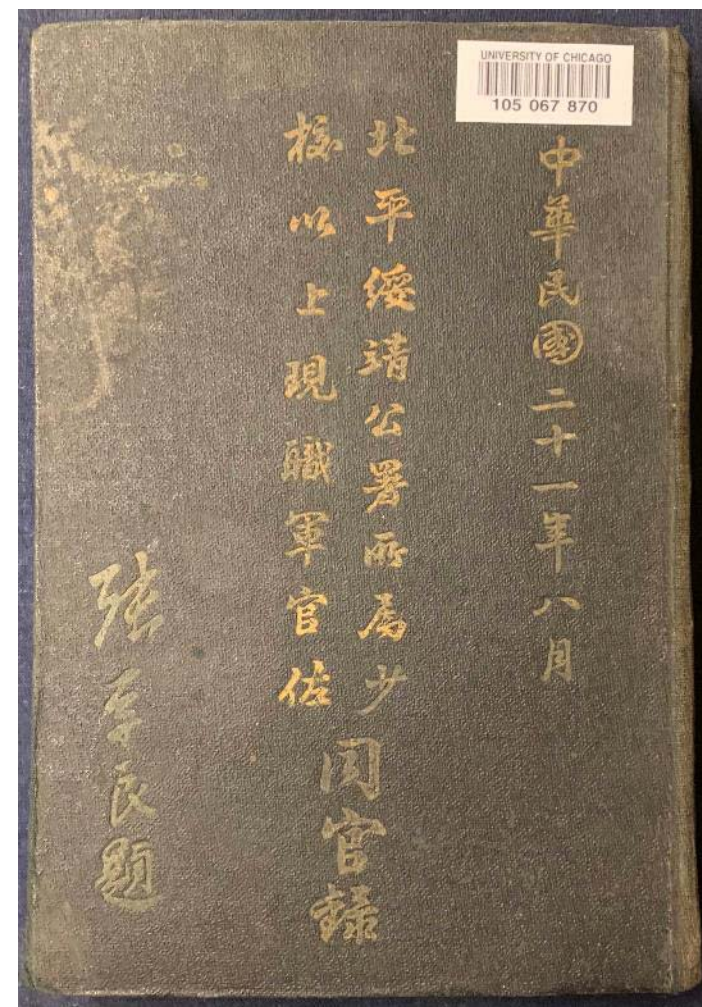 UNIVERSITY OF CHICAGO
105 067 870
中華民國二十一年八月
北平綏靖公署所属少
校以上現職軍官佐
同官錄
張學良題